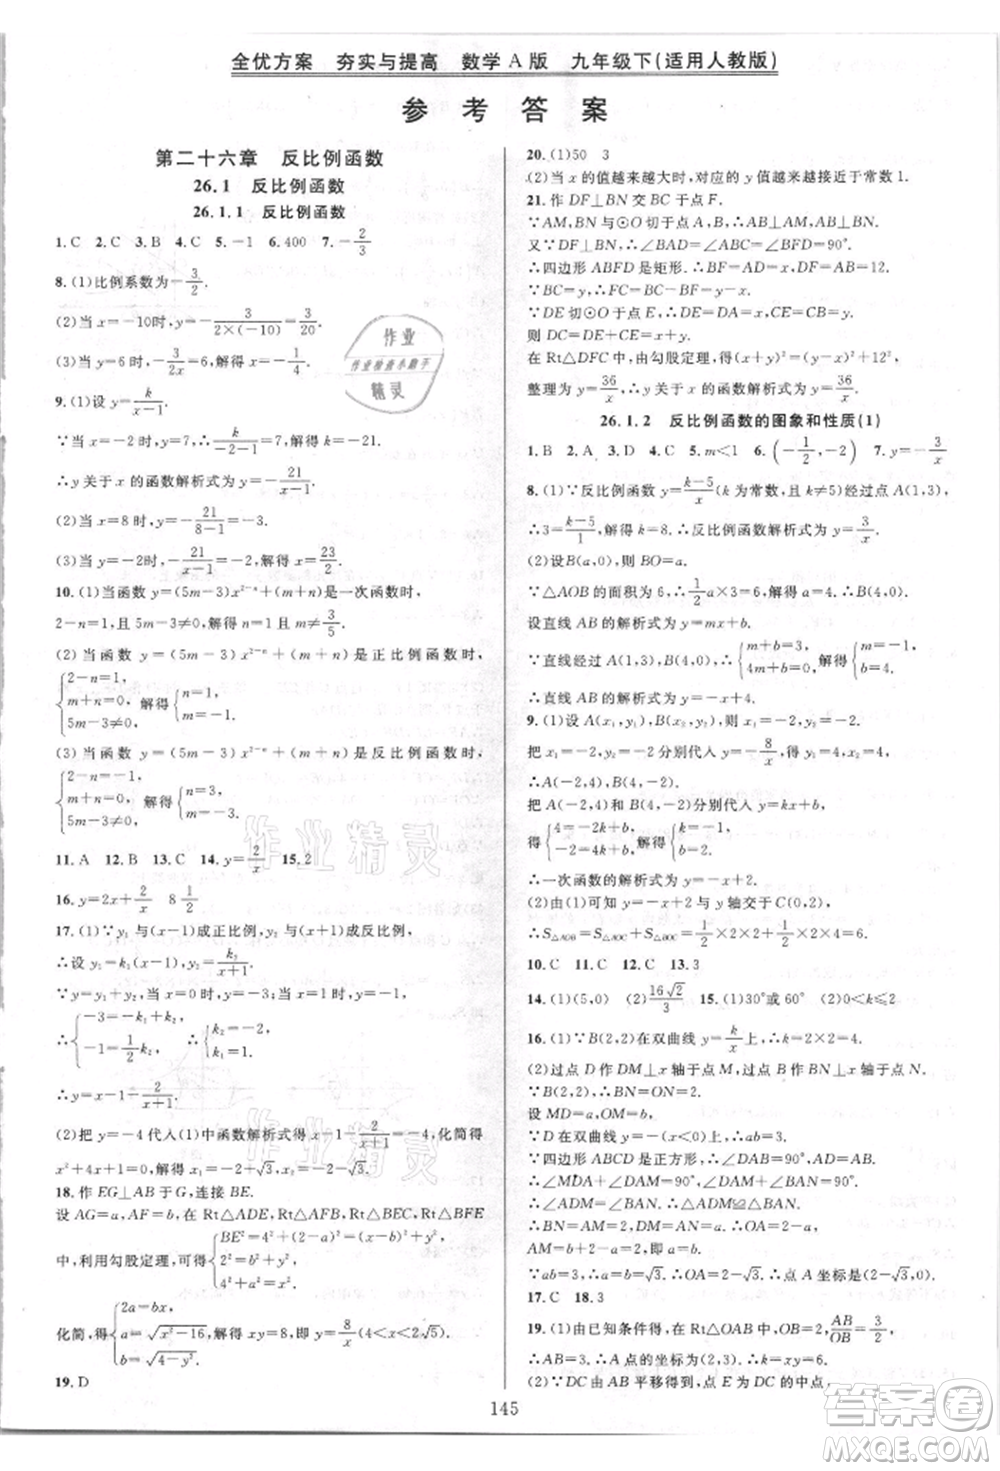 全优方案 夯实与提高 数学A版 九年级下(适用人教版)
参考答案
第二十六章 反比例函数
26.1 反比例函数
26.1.1 反比例函数
1.C 2.C 3.B 4.C 5.-1 6.400 7.-2/3
8.(1)比例系数为-3/2.
(2)当x=-10时,y=-3/(2×(-10))=3/20.
(3)当y=6时,-3/(2x)=6,解得x=-1/4.
9.(1)设y=k/(x-1).
∵当x=-2时,y=7,∴k/(-2-1)=7,解得k=-21.
∴y关于x的函数解析式为y=-21/(x-1).
(2)当x=8时,y=-21/(8-1)=-3.
(3)当y=-2时,-21/(x-1)=-2,解得x=23/2.
10.(1)当函数y=(5m-3)x²⁻ⁿ+(m+n)是一次函数时,
2-n=1,且5m-3≠0,解得n=1,且m≠3/5.
(2)当函数y=(5m-3)x²⁻ⁿ+(m+n)是正比例函数时,
{2-n=1, m+n=0, 5m-3≠0, 解得{n=1, m=-1.
(3)当函数y=(5m-3)x²⁻ⁿ+(m+n)是反比例函数时,
{2-n=-1, m+n=0, 5m-3≠0, 解得{n=3, m=-3.
11.A 12.B 13.C 14.y=2/x 15.2
16.y=2x+2/x 8 1/2
17.(1)∵y₁与(x-1)成正比例,y₂与(x+1)成反比例,
∴设y₁=k₁(x-1),y₂=k₂/(x+1).
∵y=y₁+y₂,当x=0时,y=-3,当x=1时,y=-1,
∴{-3=-k₁+k₂, -1=1/2k₂. ∴{k₂=-2, k₁=1.
∴y=x-1-2/(x+1).
(2)把y=-4代入(1)中函数解析式得x-1-2/(x+1)=-4,化简得
x²+4x+1=0,解得x₁=-2+√3,x₂=-2-√3.
18.作EG⊥AB于G,连接BE.
设AG=a,BF=b,在Rt△ADE,Rt△AFB,Rt△BEC,Rt△BFE
中,利用勾股定理,可得
化简得{2a=bx, a=√(x²-16), 解得xy=8,即y=8/x(4<x<2√5).
19.D
20.(1)50 3
(2)当x的值越来越大时,对应的y值越来越接近于常数1.
21.作DF⊥BN交BC于点F.
∵AM,BN与⊙O切于点A,B,∴AB⊥AM,AB⊥BN.
又∵DF⊥BN,∴∠BAD=∠ABC=∠BFD=90°.
∴四边形ABFD是矩形.∴BF=AD=x,DF=AB=12.
∵BC=y,∴FC=BC-BF=y-x.
∵DE切⊙O于点E,∴DE=DA=x,CE=CB=y.
则DC=DE+CE=x+y.
在Rt△DFC中,由勾股定理得(x+y)²=(y-x)²+12²,
整理为y=36/x.∴y关于x的函数解析式为y=36/x.
26.1.2 反比例函数的图象和性质(1)
1.B 2.A 3.D 4.C 5.m<1 6.(-1/2,-2) 7.y=-3/x
8.(1)∵反比例函数y=(k-5)/x(k为常数,且k≠5)经过点A(1,3),
∴3=(k-5)/1,解得k=8.∴反比例函数解析式为y=3/x.
(2)设B(a,0),则BO=a.
∵△AOB的面积为6,∴1/2a×3=6,解得a=4.∴B(4,0).
设直线AB的解析式为y=mx+b.
∵直线经过A(1,3),B(4,0),∴{m+b=3, 4m+b=0, 解得{m=-1, b=4.
∴直线AB的解析式为y=-x+4.
9.(1)设A(x₁,y₁),B(x₂,y₂),则x₁=-2,y₂=-2.
把x₁=y₂=-2分别代入y=-8/x,得y₁=x₂=4.
∴A(-2,4),B(4,-2).
把A(-2,4)和B(4,-2)分别代入y=kx+b,
得{4=-2k+b, -2=4k+b, 解得{k=-1, b=2.
∴一次函数的解析式为y=-x+2.
(2)由(1)可知y=-x+2与y轴交于C(0,2).
∴S△AOB=S△AOC+S△BOC=1/2×2×2+1/2×2×4=6.
10.C 11.C 12.C 13.3
14.(1)(5,0) (2)16√2/3 15.(1)30°或60° (2)0<k≤2
16.(1)∵B(2,2)在双曲线y=k/x上,∴k=2×2=4.
(2)过点D作DM⊥x轴于点M,过点B作BN⊥x轴于点N.
∵B(2,2),∴BN=ON=2.
设MD=a,OM=b.
∵D在双曲线y=-4/x(x<0)上,∴ab=4.
∵四边形ABCD是正方形,∴∠DAB=90°,AD=AB.
∴∠MDA+∠DAM=90°,∠DAM+∠BAN=90°.
∴∠ADM=∠BAN.∴△ADM≌△BAN.
∴BN=AM=2,DM=AN=a.∴OA=2-a,
AM=b+2-a=2,即a=b.
∵ab=4,∴a=b=2.∴OA=2-2=0
17.C 18.3
19.(1)由已知条件得,在Rt△OAB中,OB=2,AB/OB=3/2,
∴AB=3.∴A点的坐标为(2,3).∴k=xy=6.
(2)∵DC由AB平移得到,DE:EC=2:1,∴点E的纵坐标为1.
145
作业
作业检查小助手
精灵
作业精灵
作业精灵
答案圈
MXQE.COM